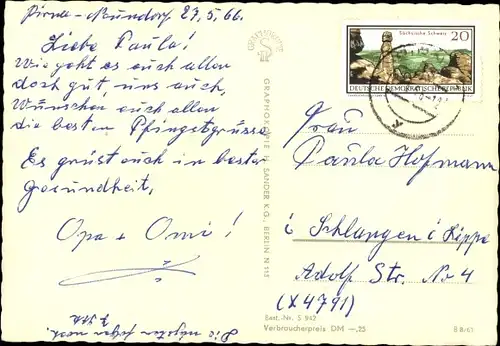 Pirna-Neundorf 27.5.66.
Liebe Paula!
Wie geht es euch allen
doch gut, uns auch,
Wünschen euch allen
die besten Pfingstgrüsse
Es grüst euch in bester
Gesundheit,
Opa + Omi!
Die
folgen noch
GRAPHOKARTE H. SANDER K.G., BERLIN N 113
Sächsische Schweiz
20
DEUTSCHE DEMOKRATISCHE REPUBLIK
Frau
Paula Hofmann
i Schlangen i Lippe
Adolf Str. Nr 4
(X4791)
Best.-Nr. S 942
Verbraucherpreis DM —,25